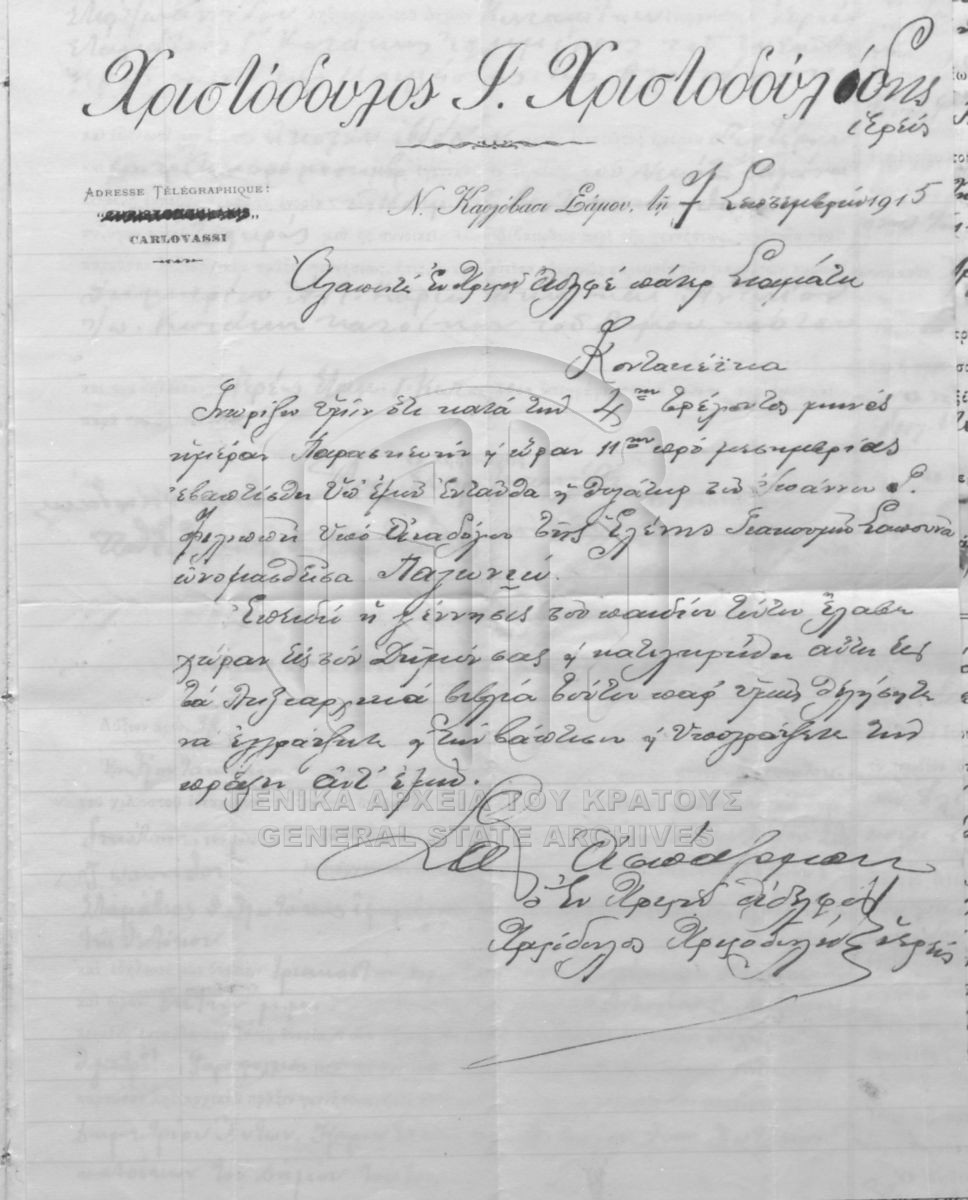 Χριστόδουλος Ι. Χριστοδουλίδης
ἱερεύς
ADRESSE TÉLÉGRAPHIQUE:
CARLOVASSI
Ν. Καρλόβασι Σάμου, τῇ 7 Σεπτεμβρίου 1915
Ἀγαπητέ ἐν Χριστῷ ἀδελφέ πάτερ Σταμάτιε
Κοντακέϊκα
Γνωρίζω ὑμῖν ὅτι κατά τήν 4ην τρέχοντος μηνός
ἡμέραν Παρασκευήν ᾳ ὥραν 11ην πρό μεσημβρίας
ἐβαπτίσθη ὑπ' ἐμοῦ ἐνταῦθα ἡ θυγάτηρ τοῦ Ἰωάννου
ὑπό ἀναδόχου τῆς Ἑλένης Γιακουμῆ
ὀνομασθεῖσα
Ἐπειδή ἡ γέννησις τοῦ παιδίου τούτου ἔλαβε
χώραν εἰς τόν Δῆμόν σας ᾳ κατεγράφη αὕτη εἰς
τά ληξιαρχικά βιβλία τούτου παρ' ὑμῶν θελήσητε
νά ἐγγράψητε ᾳ τήν βάπτισιν ᾳ ὑπογράψετε τήν
πρᾶξιν ἀντ' ἐμοῦ.
Σᾶς ἀσπάζομαι
ὁ ἐν Χριστῷ ἀδελφός
Χριστόδουλος Χριστοδουλίδης ἱερεύς
ΓΕΝΙΚΑ ΑΡΧΕΙΑ ΤΟΥ ΚΡΑΤΟΥΣ
GENERAL STATE ARCHIVES